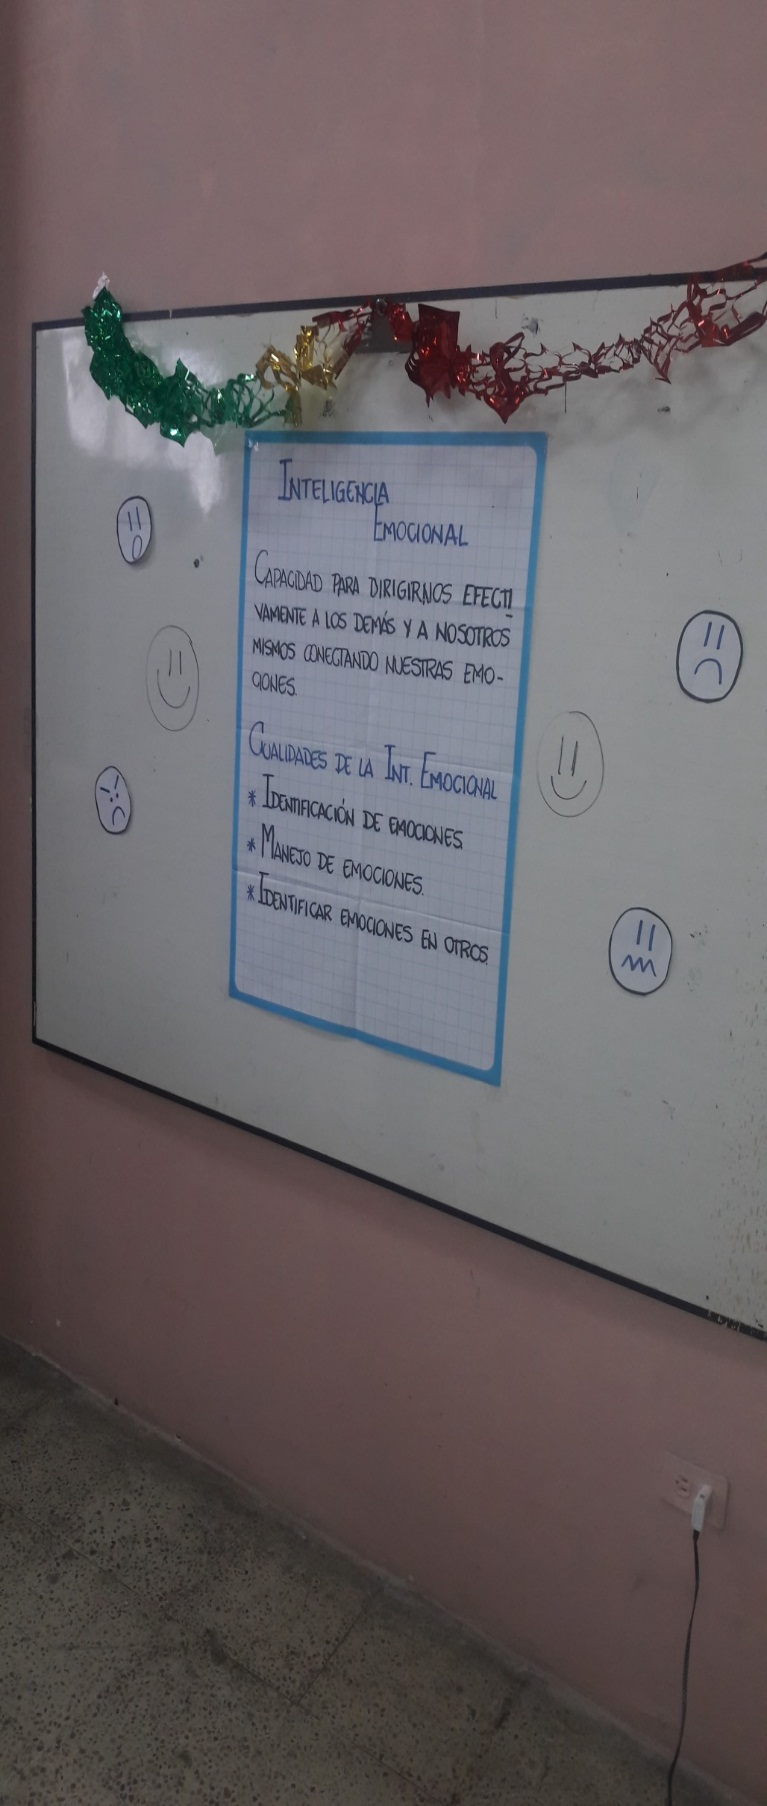 INTELIGENCIA
EMOCIONAL
CAPACIDAD PARA DIRIGIRNOS EFECTI
VAMENTE A LOS DEMÁS Y A NOSOTROS
MISMOS CONECTANDO NUESTRAS EMO-
CIONES.
CUALIDADES DE LA INT. EMOCIONAL
* IDENTIFICACIÓN DE EMOCIONES.
* MANEJO DE EMOCIONES.
* IDENTIFICAR EMOCIONES EN OTROS.